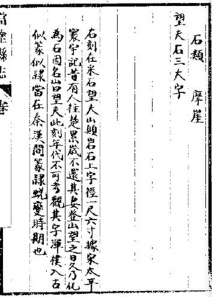 石類　摩崖
望夫石三大字
石刻在采石望夫山頭岩石上字徑一尺六寸據宋太平
寰宇記昔有人往楚累歲不還其妻登山望之日久乃化
為石因名山曰望夫此刻年代不可考觀其字渾樸入古
似篆似隸當在秦漢間篆隸蛻變時期也
當塗縣志
卷